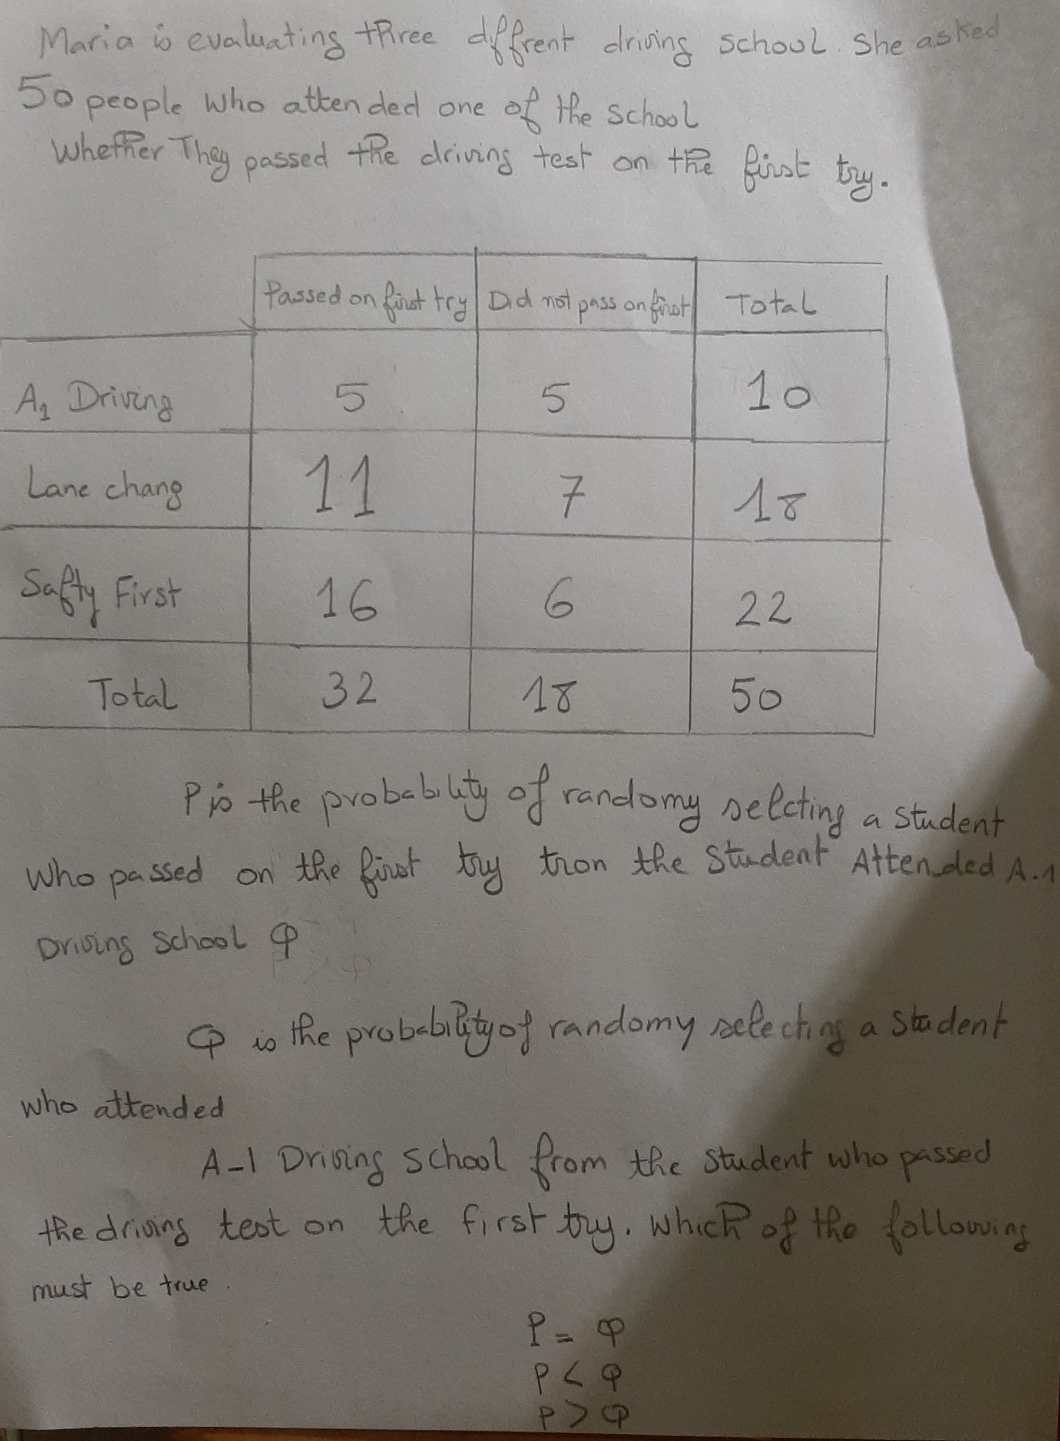 Maria is evaluating three diffrent driving school. She asked
50 people who attended one of the school
Whether They passed the driving test on the first try.
Passed on first try Did not pass on first Total
A1 Driving 5 5 10
Lane chang 11 7 18
Safty First 16 6 22
Total 32 18 50
P is the probability of randomy selcting a student
who passed on the first try tron the Student Attended A.1
Driving School φ
φ is the probability of randomy selecting a student
who attended
A-1 Driving School from the student who passed
the driving test on the first try. Which of the following
must be true.
P = φ
P < φ
P > φ